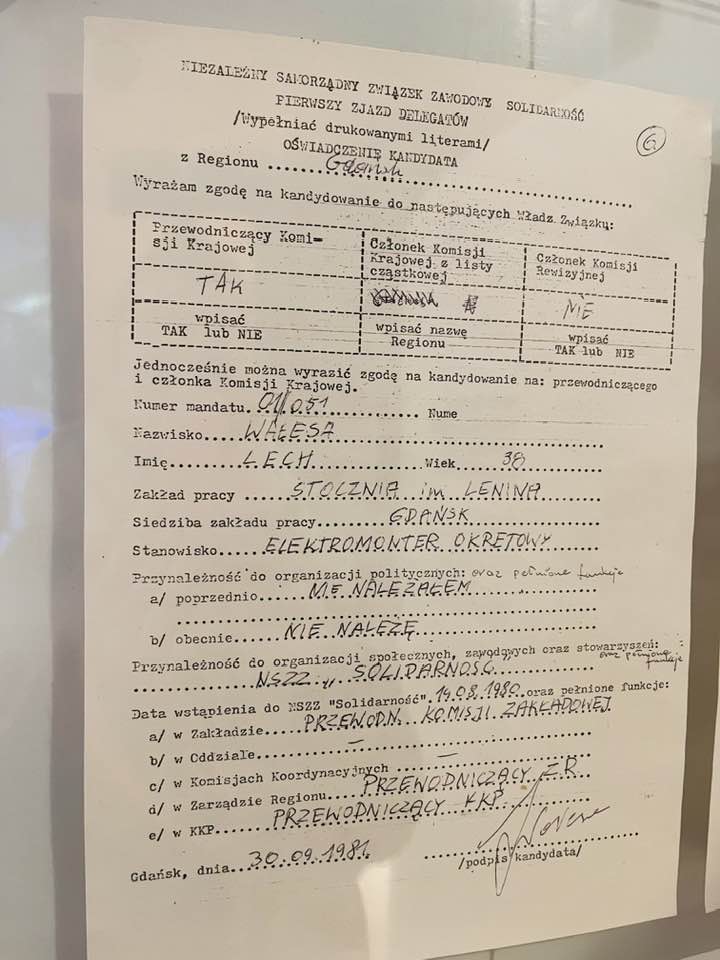 NIEZALEŻNY SAMORZĄDNY ZWIĄZEK ZAWODOWY SOLIDARNOŚĆ
PIERWSZY ZJAZD DELEGATÓW
/Wypełniać drukowanymi literami/
OŚWIADCZENIE KANDYDATA
z Regionu ...Gdańsk...
Wyrażam zgodę na kandydowanie do następujących Władz Związku:
Przewodniczący Komi-
sji Krajowej
Członek Komisji
Krajowej z listy
cząstkowej
Członek Komisji
Rewizyjnej
TAK
NIE
wpisać
TAK lub NIE
wpisać nazwę
Regionu
wpisać
TAK lub NIE
Jednocześnie można wyrazić zgodę na kandydowanie na: przewodniczącego
i członka Komisji Krajowej.
Numer mandatu. 01/051 ... Nume
Nazwisko... WAŁESA
Imię... LECH ... Wiek... 38
Zakład pracy ... STOCZNIA im LENINA
Siedziba zakładu pracy... GDAŃSK
Stanowisko... ELEKTROMONTER OKRETOWY
Przynależność do organizacji politycznych: oraz pełnione funkcje
a/ poprzednio... NIE NALEŻAŁEM
b/ obecnie... NIE NALEŻĘ
Przynależność do organizacji społecznych, zawodowych oraz stowarzyszeń: oraz pełnione funkcje
NSZZ „SOLIDARNOŚĆ"
Data wstąpienia do NSZZ "Solidarność". 14.08.1980 oraz pełnione funkcje:
a/ w Zakładzie... PRZEWODN. KOMISJI ZAKŁADOWEJ
b/ w Oddziale... —
c/ w Komisjach Koordynacyjnych ... —
d/ w Zarządzie Regionu... PRZEWODNICZĄCY Z.R
e/ w KKP... PRZEWODNICZĄCY KKP
Gdańsk, dnia... 30.09.1981.
/podpis kandydata/